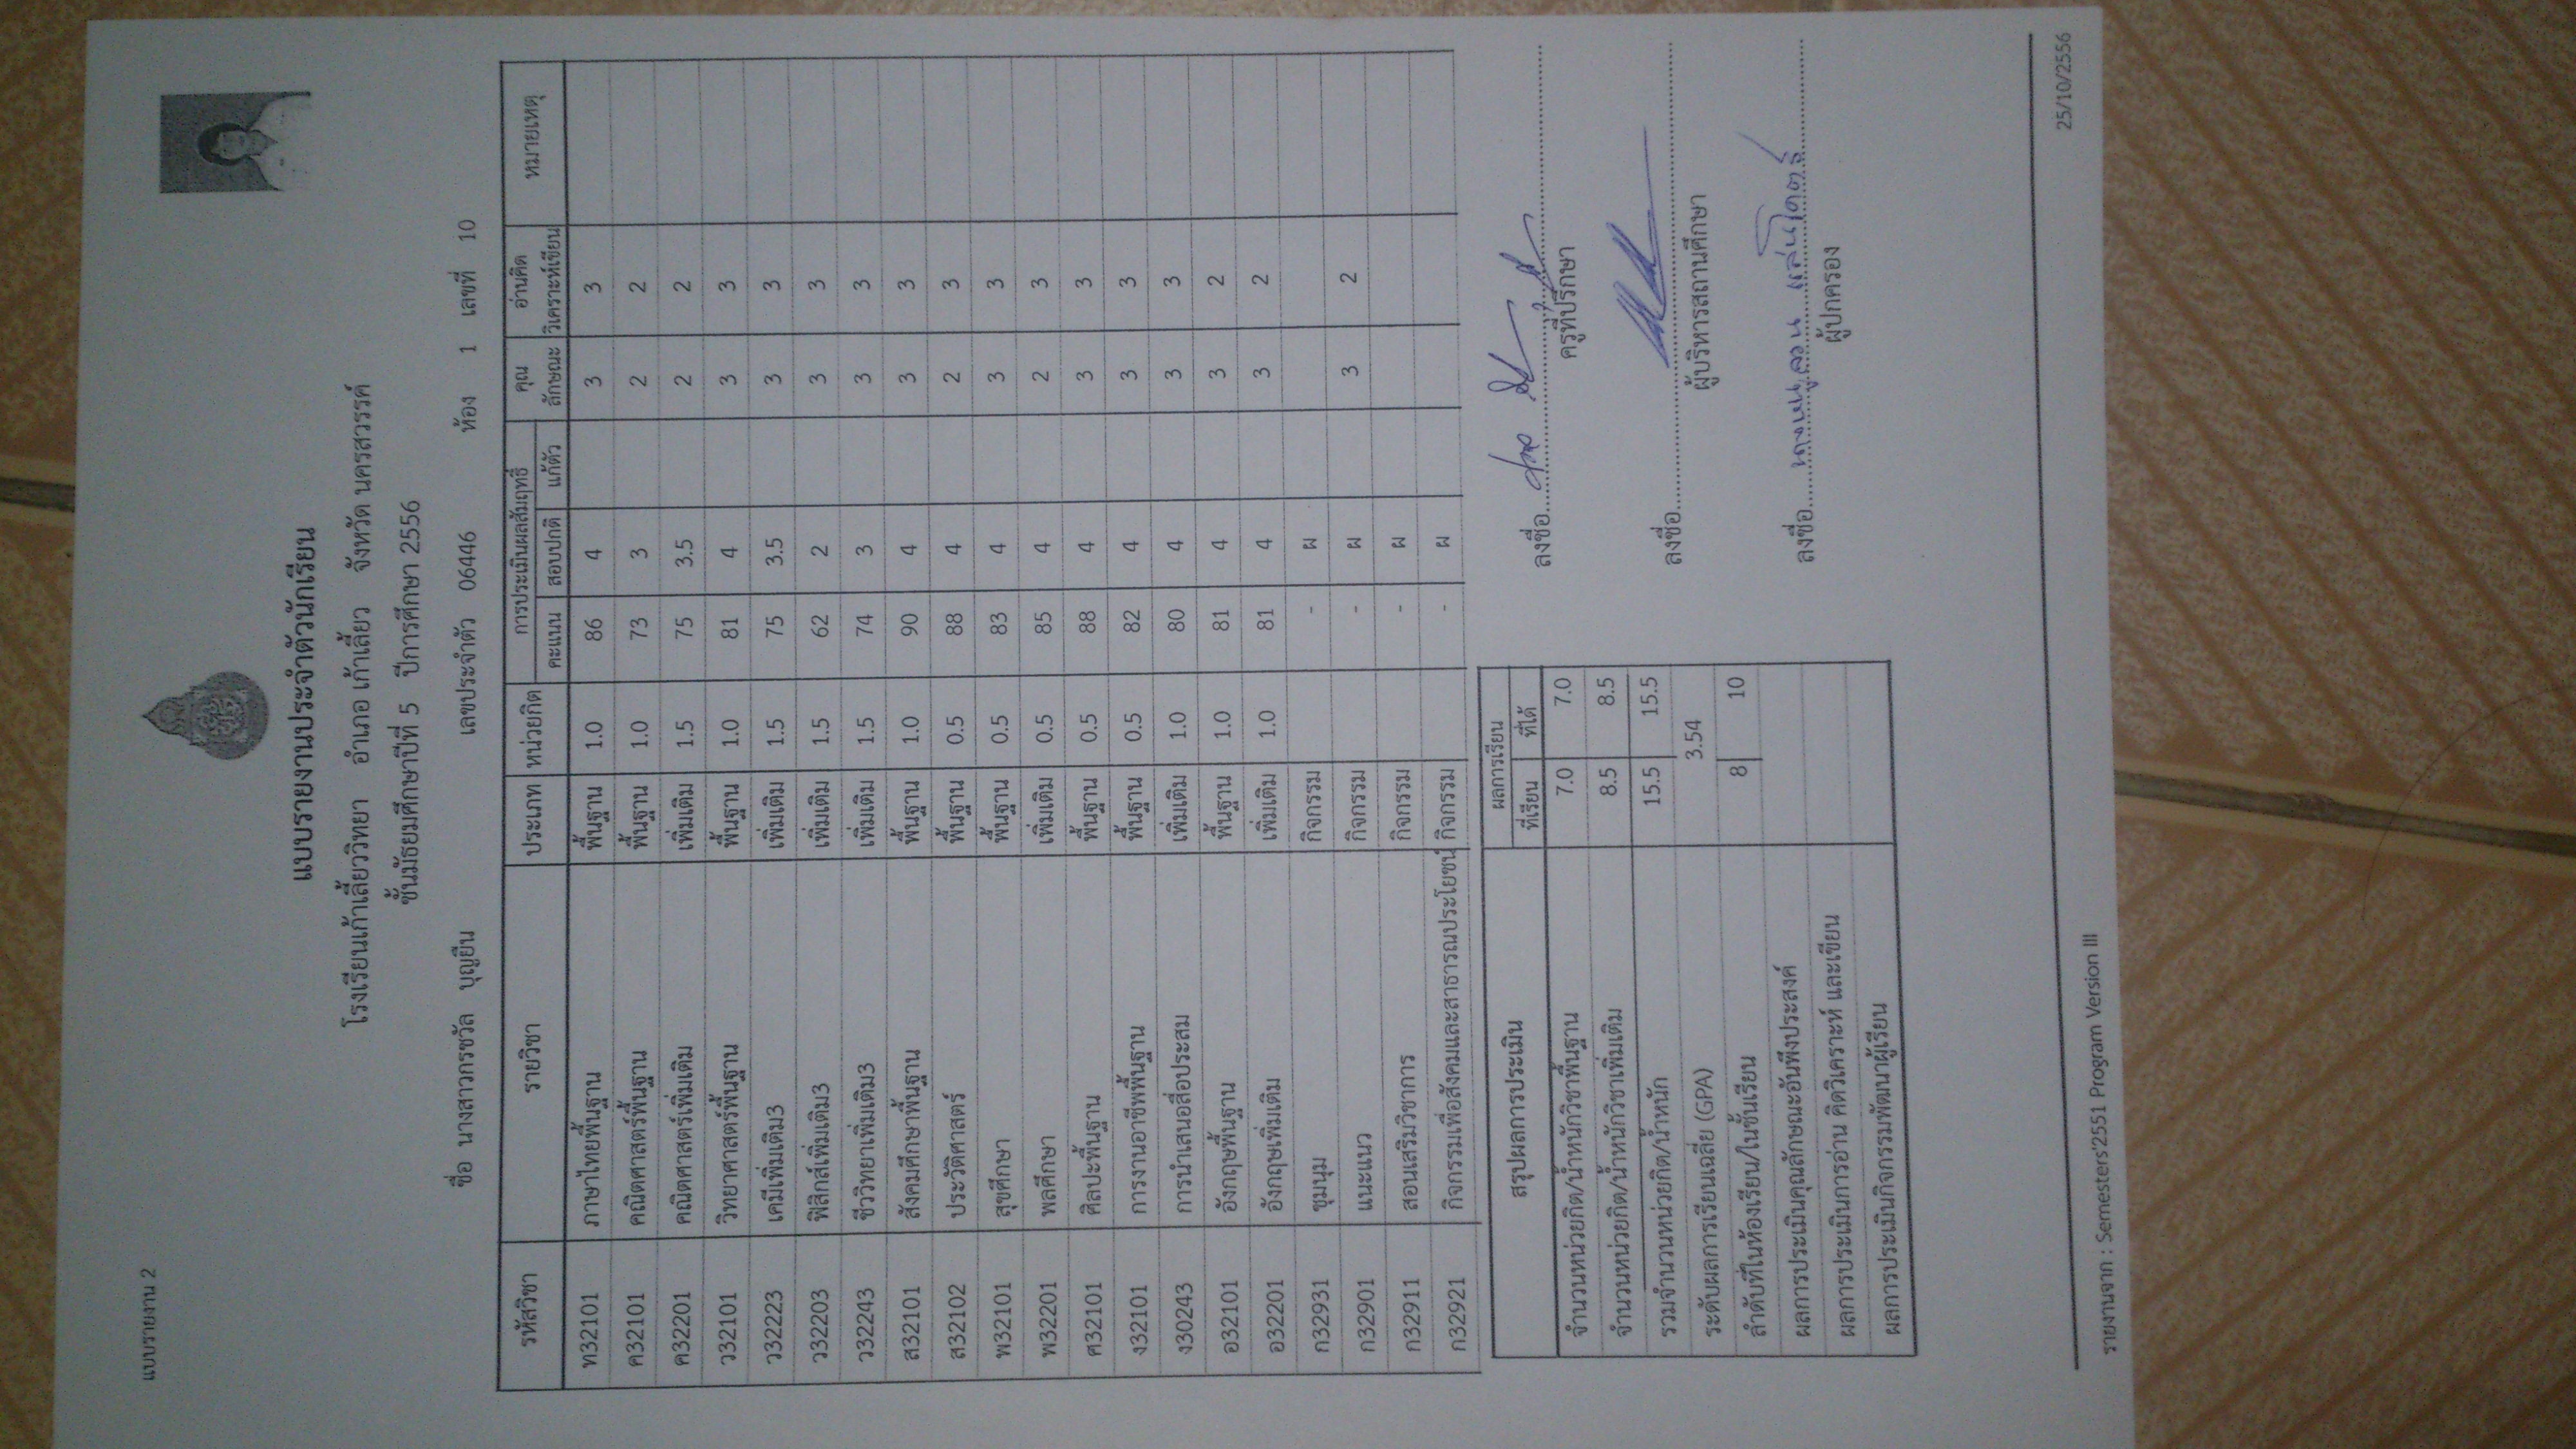 แบบรายงาน 2
แบบรายงานประจำตัวนักเรียน
โรงเรียนเก้าเลี้ยววิทยา อำเภอ เก้าเลี้ยว จังหวัด นครสวรรค์
ชั้นมัธยมศึกษาปีที่ 5 ปีการศึกษา 2556
ชื่อ นางสาวกรชวัล บุญยืน เลขประจำตัว 06446 ห้อง 1 เลขที่ 10
รหัสวิชา รายวิชา ประเภท หน่วยกิต การประเมินผลสัมฤทธิ์ คุณลักษณะ อ่านคิดวิเคราะห์เขียน หมายเหตุ
คะแนน สอบปกติ แก้ตัว
ท32101 ภาษาไทยพื้นฐาน พื้นฐาน 1.0 86 4 3 3
ค32101 คณิตศาสตร์พื้นฐาน พื้นฐาน 1.0 73 3 2 2
ค32201 คณิตศาสตร์เพิ่มเติม เพิ่มเติม 1.5 75 3.5 2 2
ว32101 วิทยาศาสตร์พื้นฐาน พื้นฐาน 1.0 81 4 3 3
ว32223 เคมีเพิ่มเติม3 เพิ่มเติม 1.5 75 3.5 3 3
ว32203 ฟิสิกส์เพิ่มเติม3 เพิ่มเติม 1.5 62 2 3 3
ว32243 ชีววิทยาเพิ่มเติม3 เพิ่มเติม 1.5 74 3 3 3
ส32101 สังคมศึกษาพื้นฐาน พื้นฐาน 1.0 90 4 3 3
ส32102 ประวัติศาสตร์ พื้นฐาน 0.5 88 4 2 3
พ32101 สุขศึกษา พื้นฐาน 0.5 83 4 3 3
พ32201 พลศึกษา เพิ่มเติม 0.5 85 4 2 3
ศ32101 ศิลปะพื้นฐาน พื้นฐาน 0.5 88 4 3 3
ง32101 การงานอาชีพพื้นฐาน พื้นฐาน 0.5 82 4 3 3
ง30243 การนำเสนอสื่อประสม เพิ่มเติม 1.0 80 4 3 3
อ32101 อังกฤษพื้นฐาน พื้นฐาน 1.0 81 4 3 2
อ32201 อังกฤษเพิ่มเติม เพิ่มเติม 1.0 81 4 3 2
ก32931 ชุมนุม กิจกรรม - ผ
ก32901 แนะแนว กิจกรรม - ผ 3 2
ก32911 สอนเสริมวิชาการ กิจกรรม - ผ
ก32921 กิจกรรมเพื่อสังคมและสาธารณประโยชน์ กิจกรรม - ผ
สรุปผลการประเมิน ผลการเรียน
ที่เรียน ที่ได้
จำนวนหน่วยกิต/น้ำหนักวิชาพื้นฐาน 7.0 7.0
จำนวนหน่วยกิต/น้ำหนักวิชาเพิ่มเติม 8.5 8.5
รวมจำนวนหน่วยกิต/น้ำหนัก 15.5 15.5
ระดับผลการเรียนเฉลี่ย (GPA) 3.54
ลำดับที่ในห้องเรียน/ในชั้นเรียน 8 10
ผลการประเมินคุณลักษณะอันพึงประสงค์
ผลการประเมินการอ่าน คิดวิเคราะห์ และเขียน
ผลการประเมินกิจกรรมพัฒนาผู้เรียน
ลงชื่อ
ครูที่ปรึกษา
ลงชื่อ
ผู้บริหารสถานศึกษา
ลงชื่อ
ผู้ปกครอง
รายงานจาก : Semesters'2551 Program Version III 25/10/2556